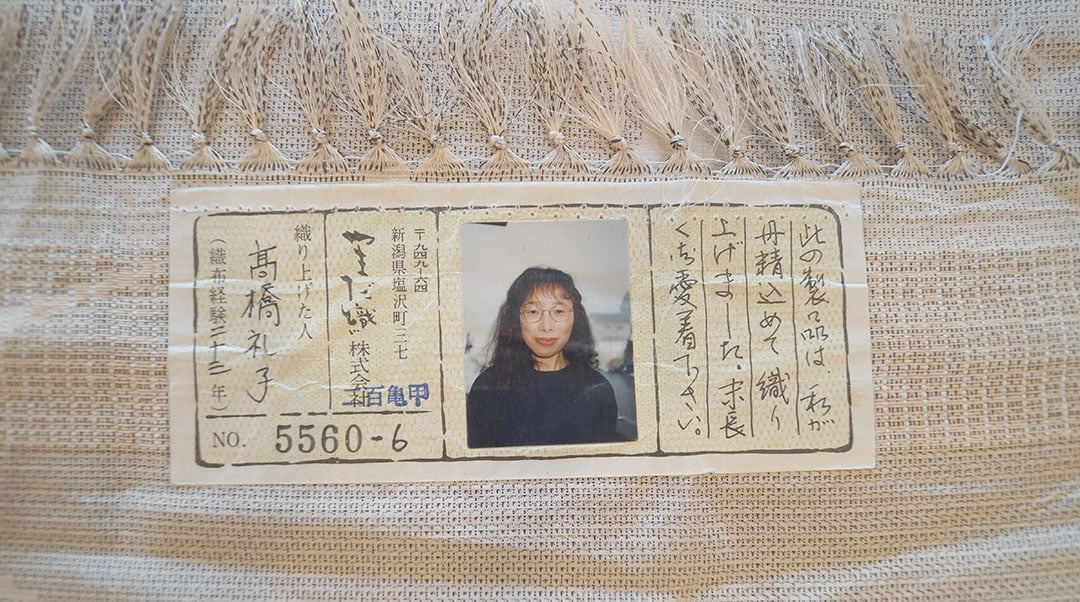 此の製品は 私が
丹精込めて織り
上げました。末長
くご愛着下さい。
〒九四九-六四
新潟県塩沢町三七
やまだ織株式会社
百亀甲
織り上げた人
髙橋礼子
(織布経験二十三年)
NO. 5560-6